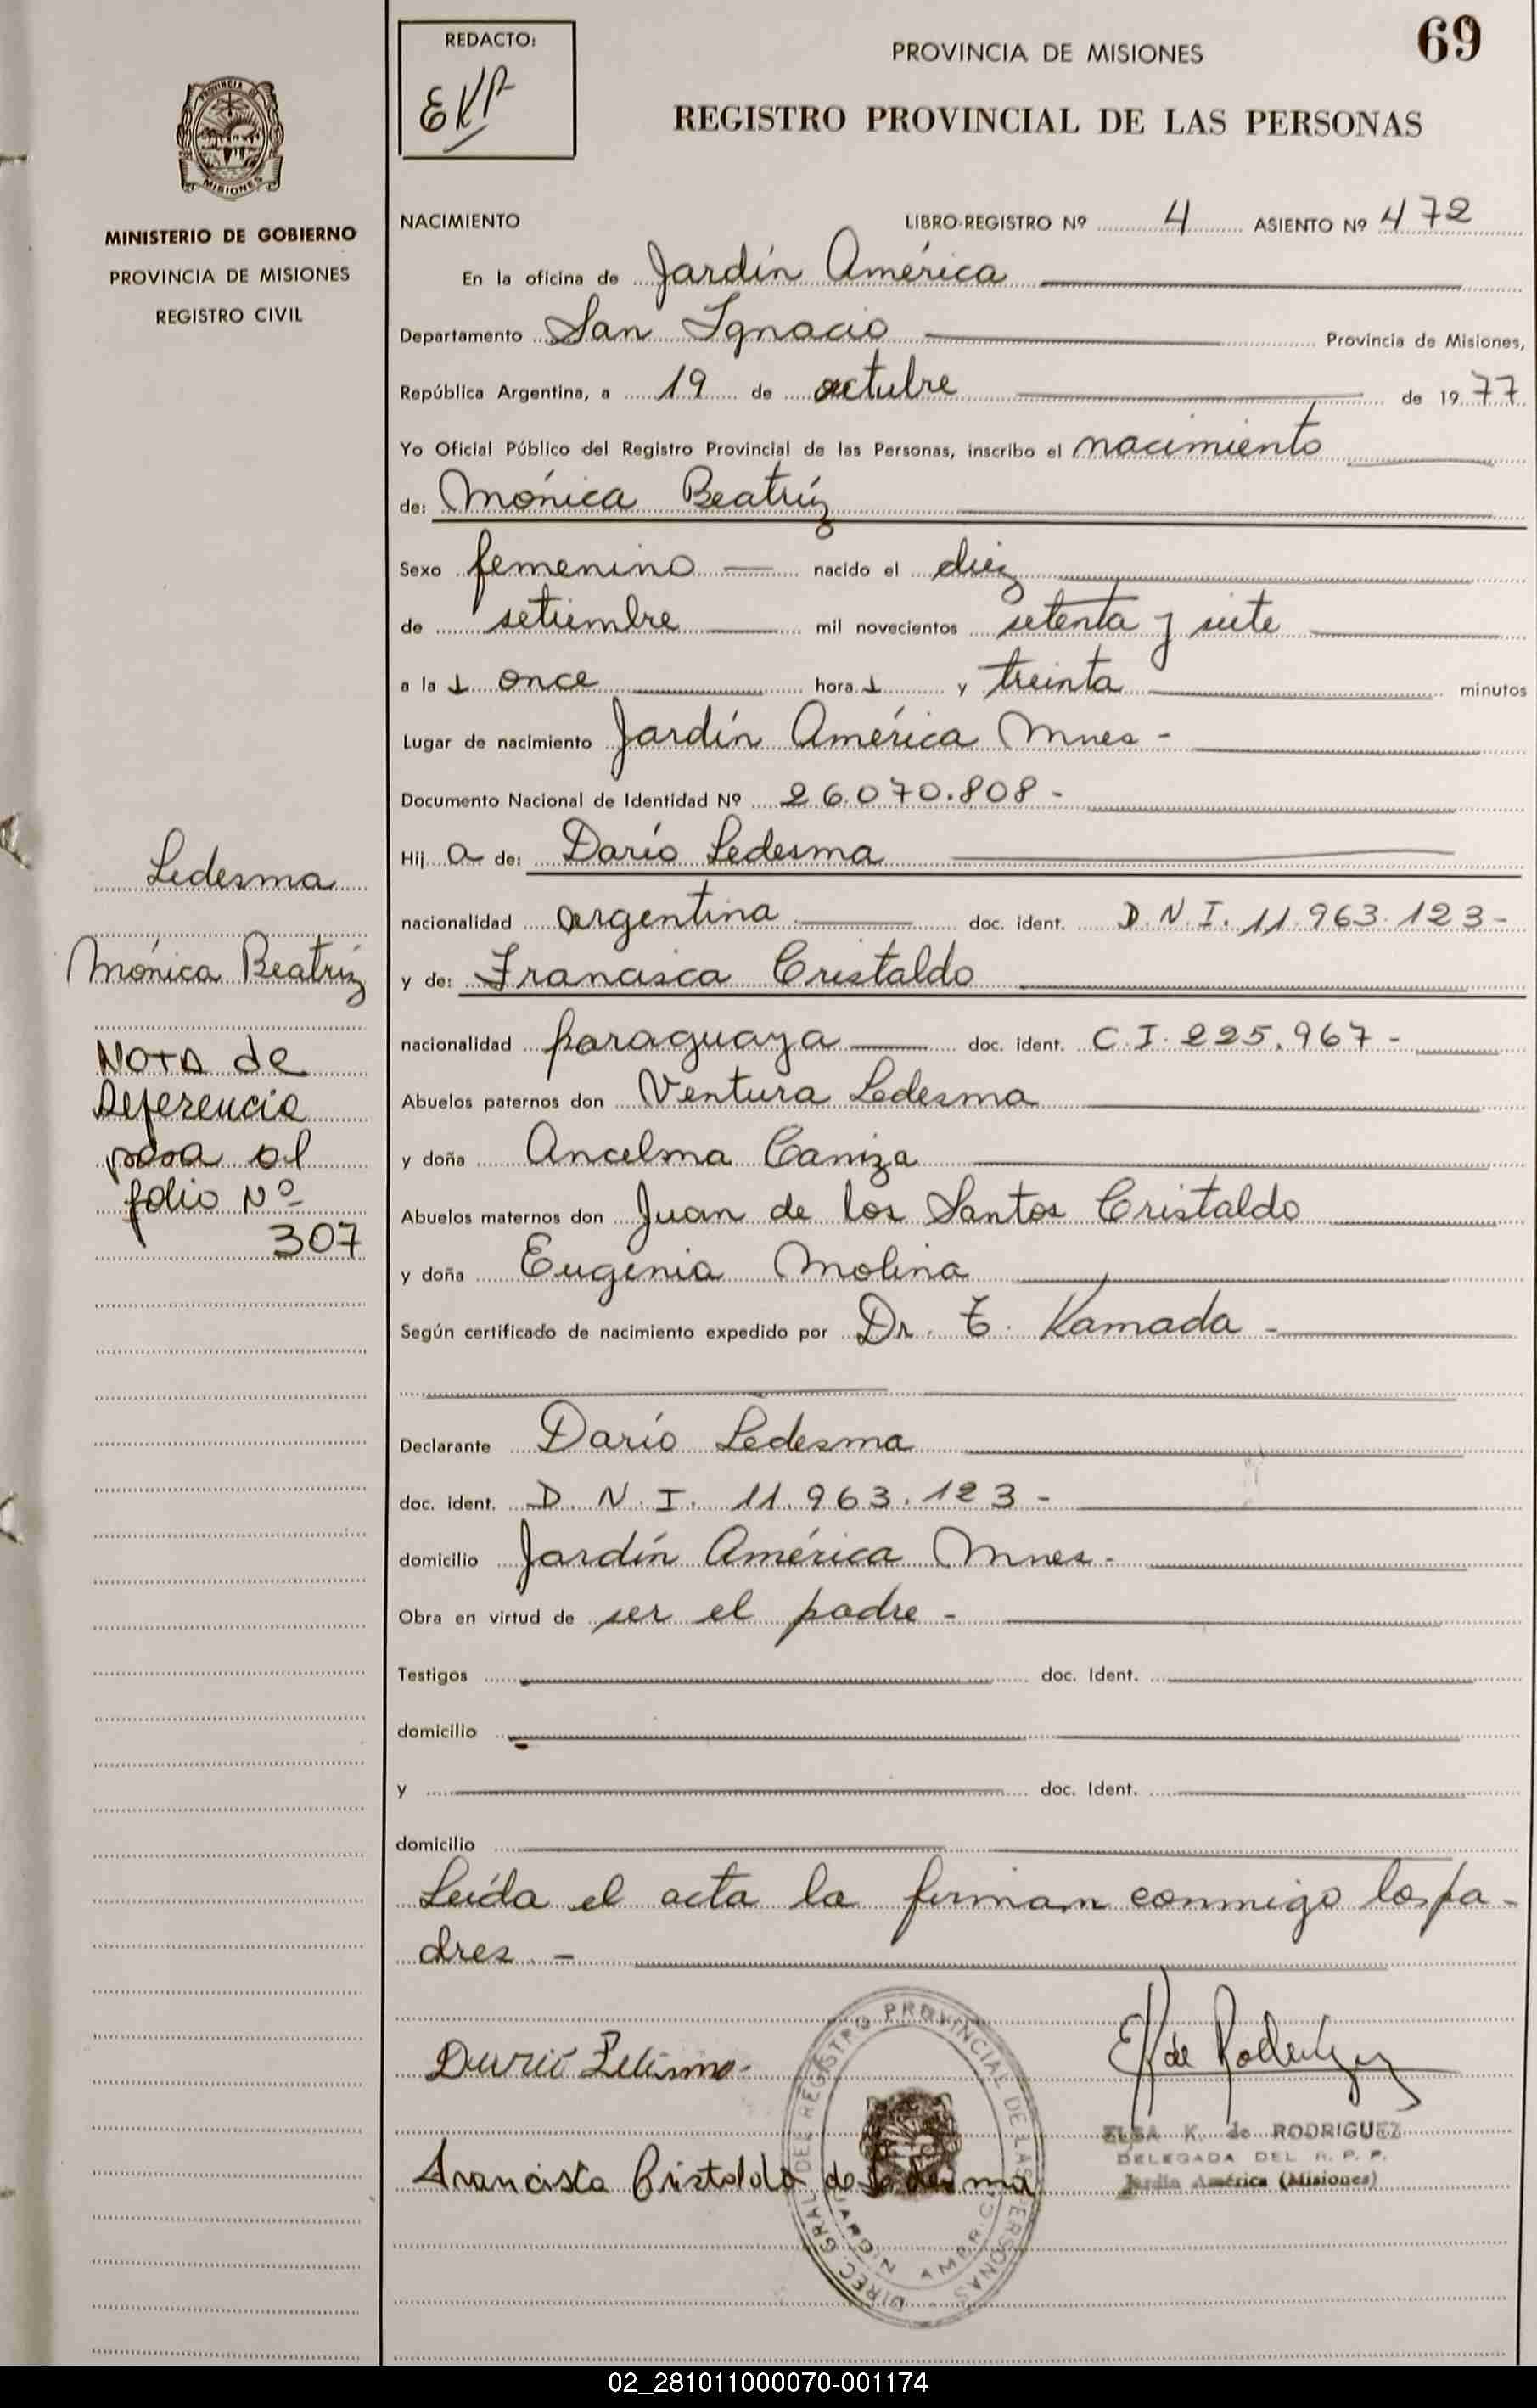 69
REDACTO:
EKR
PROVINCIA DE MISIONES
REGISTRO PROVINCIAL DE LAS PERSONAS
PROVINCIA DE
MISIONES
MINISTERIO DE GOBIERNO
PROVINCIA DE MISIONES
REGISTRO CIVIL
NACIMIENTO LIBRO-REGISTRO Nº 4 ASIENTO Nº 472
En la oficina de Jardín América
Departamento San Ignacio Provincia de Misiones,
República Argentina, a 19 de octubre de 1977
Yo Oficial Público del Registro Provincial de las Personas, inscribo el nacimiento
de: Mónica Beatríz
Sexo femenino nacido el diez
de setiembre mil novecientos setenta y siete
a la s once hora s y treinta minutos
Lugar de nacimiento Jardín América Mnes -
Documento Nacional de Identidad Nº 26.070.808 -
Hij a de: Darío Ledesma
nacionalidad argentina doc. ident. D.N.I. 11.963.123-
y de: Francisca Cristaldo
nacionalidad paraguaya doc. ident. C.I. 225.967 -
Abuelos paternos don Ventura Ledesma
y doña Ancelma Caniza
Abuelos maternos don Juan de los Santos Cristaldo
y doña Eugenia Molina
Según certificado de nacimiento expedido por Dr. T. Kamada -
Declarante Darío Ledesma
doc. ident. D.N.I. 11.963.123 -
domicilio Jardín América Mnes -
Obra en virtud de ser el padre -
Testigos doc. Ident.
domicilio
y doc. Ident.
domicilio
Leída el acta la firman conmigo los pa-
dres. -
Ledesma
Mónica Beatríz
NOTA de
Referencia
pasa al
folio Nº
307
Dario Ledesma-
Francisca Cristaldo de Ledesma
E K de Rodríguez
ELSA K. de RODRIGUEZ
DELEGADA DEL R. P. P.
Jardín América (Misiones)
DIREC. GRAL. DEL REGISTRO PROVINCIAL DE LAS PERSONAS
JARDIN AMERICA
02_281011000070-001174